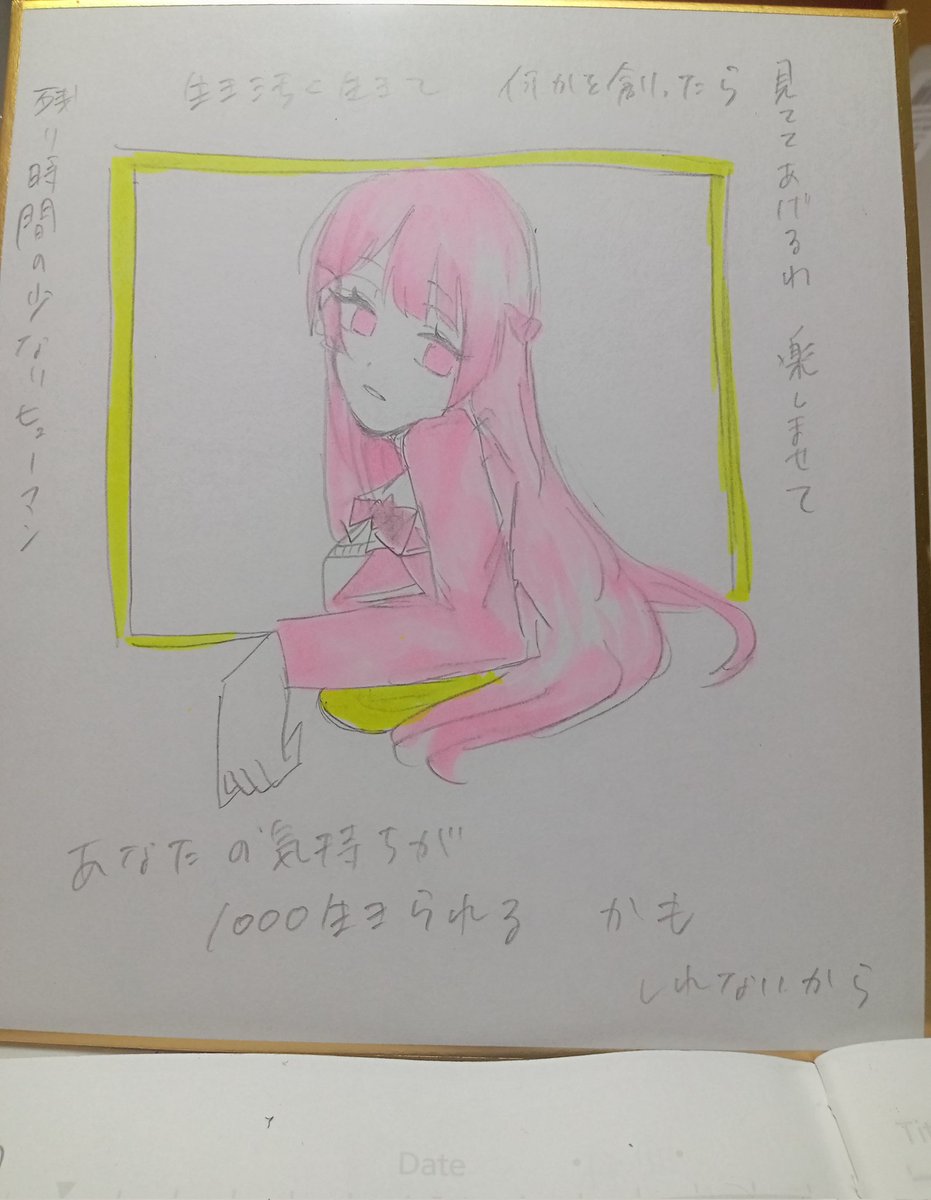 見ててあげるわ 楽しませて
生き活く生きて 何かを創ったら
残り時間の少ないヒューマン
あなたの気持ちが
1000生きられる かも
しれないから
Date